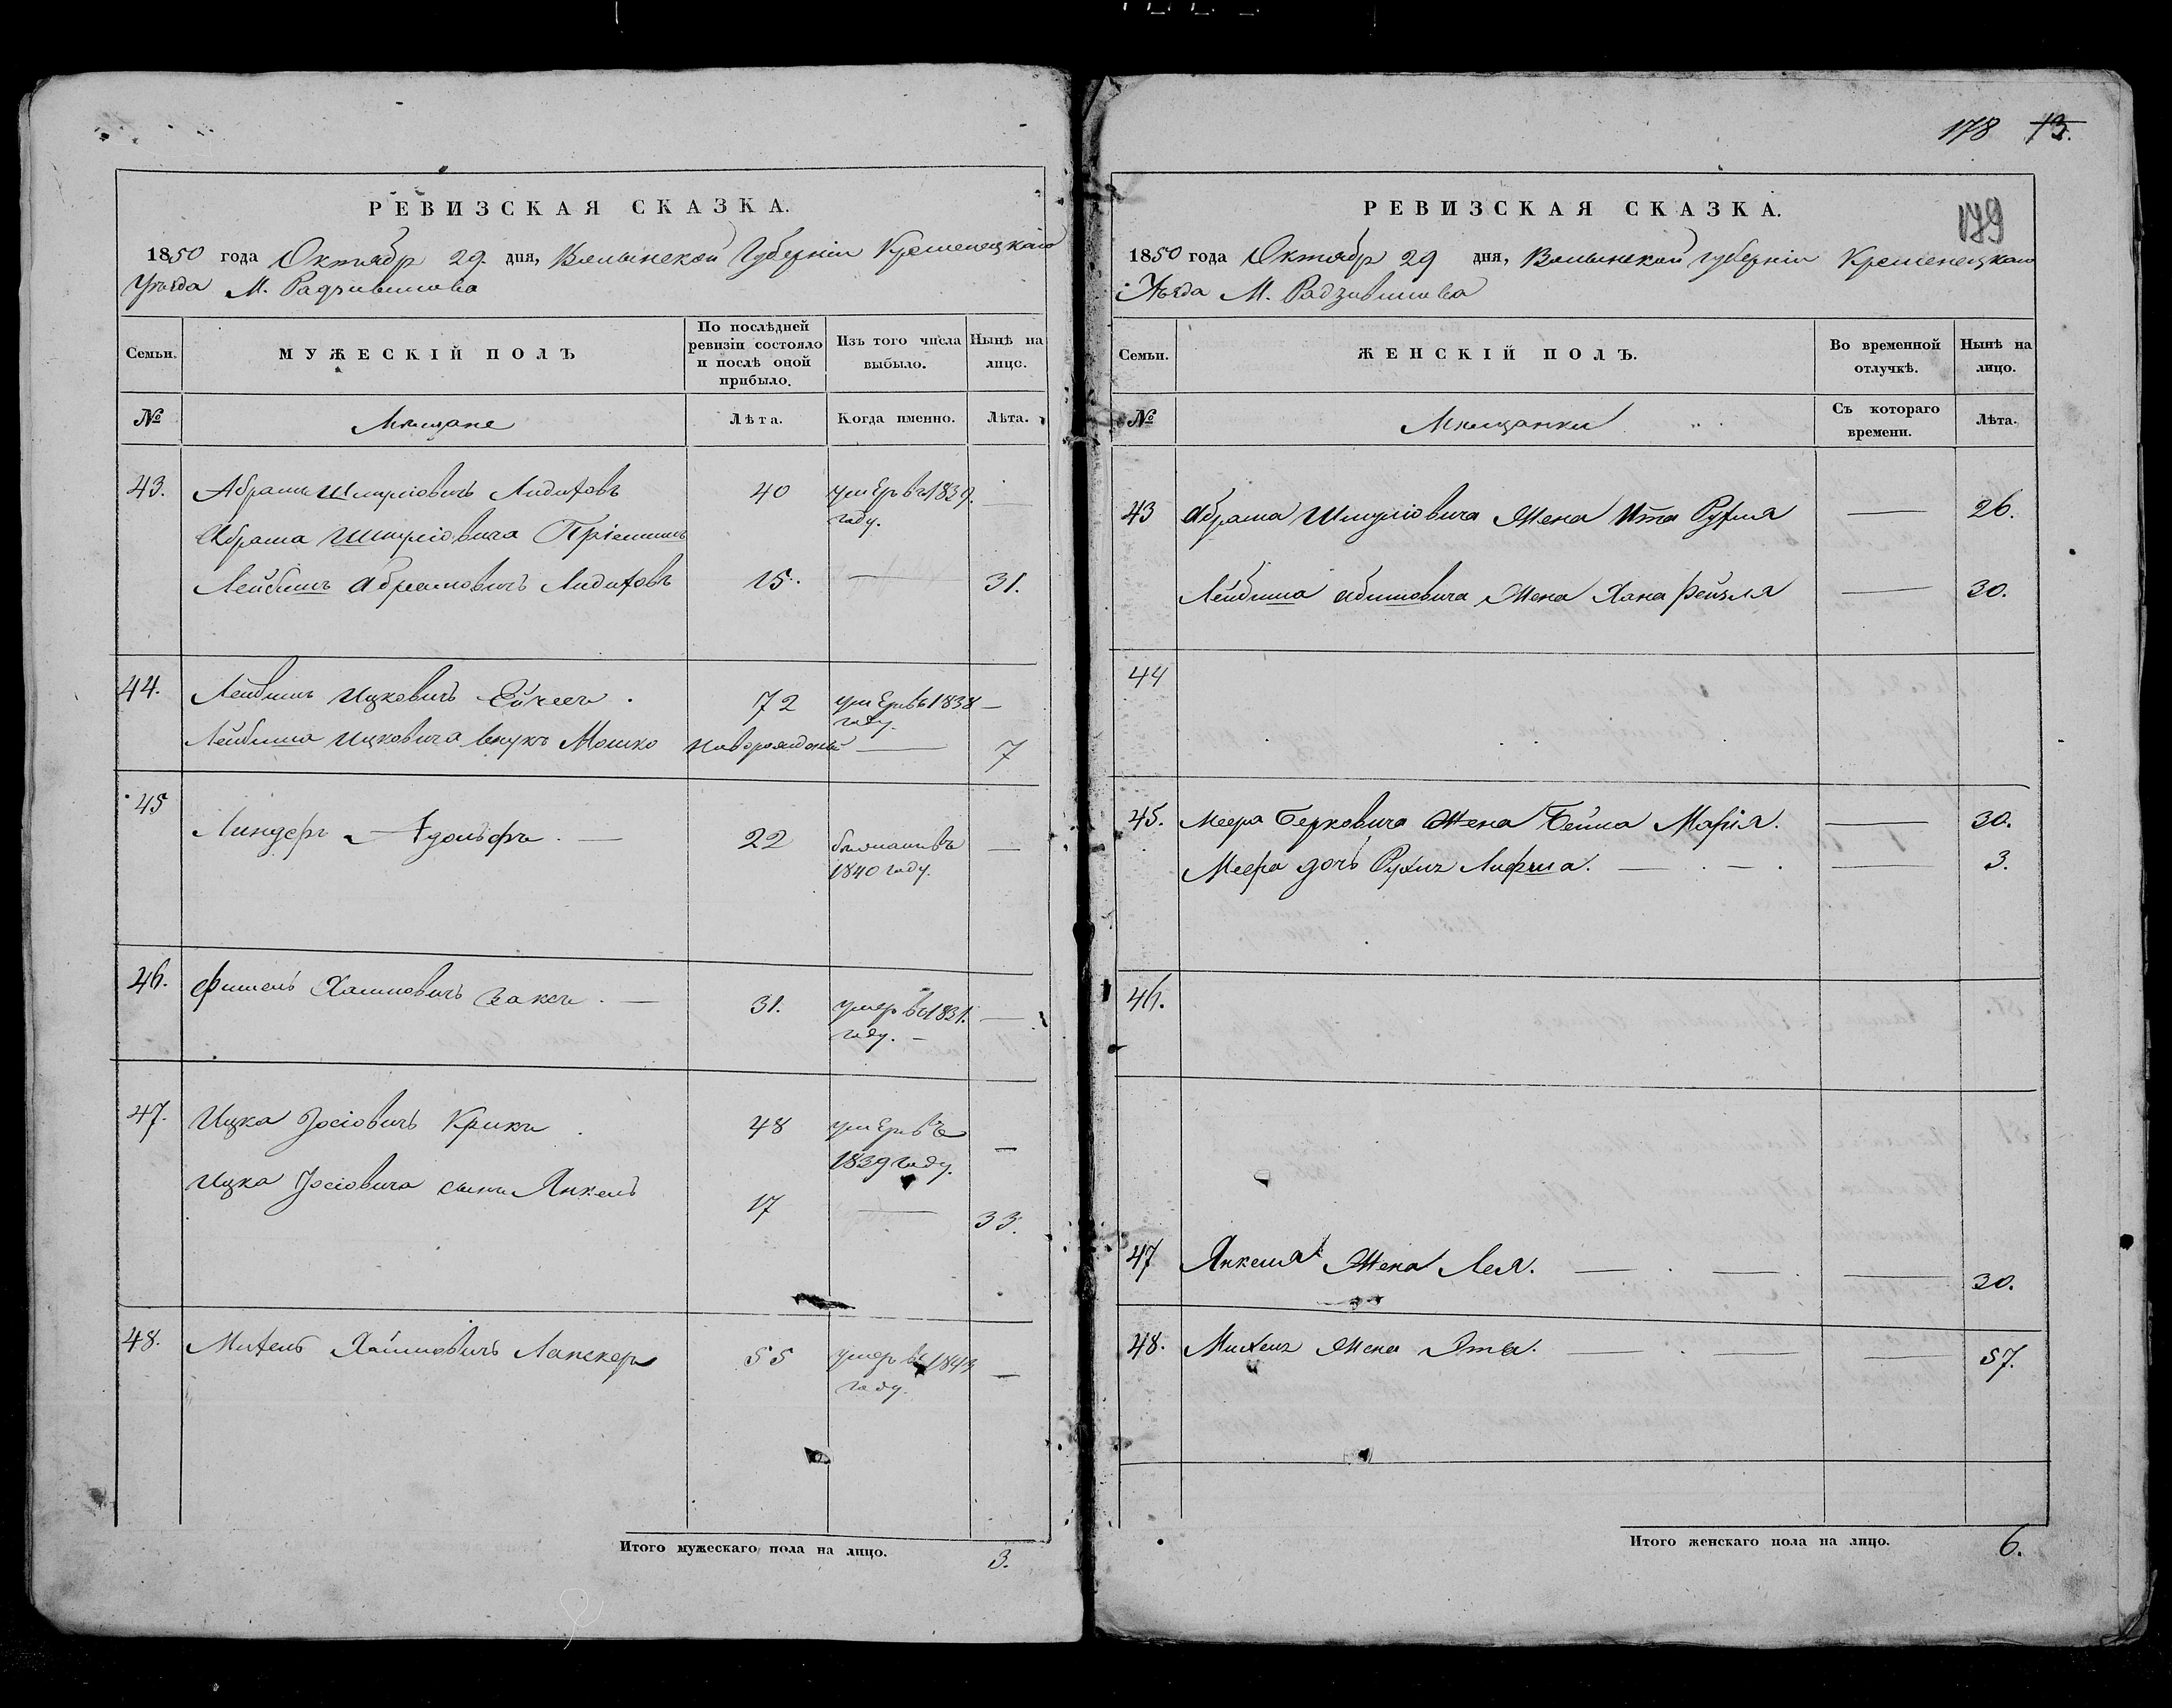 РЕВИЗСКАЯ СКАЗКА.
1850 года Октябр 29. дня, Волынской Губерніи Кременецкаго
Уѣзда М. Радзивилова
Семьи.
МУЖЕСКІЙ ПОЛЪ
По послѣдней ревизіи состояло и послѣ оной прибыло.
Изъ того числа выбыло.
Нынѣ на лицо.
№
Мѣщане
Лѣта.
Когда именно.
Лѣта.
43. Абрамъ Шмуліовичъ 40 умеръ въ 1839. —
году.
Абрама Шмуліовича Пріемышъ
Лейбишъ Абрамовичъ 15. — 31.
44. Лейбишъ Ицковичъ 72 умеръ въ 1838 —
году.
Лейбиша Ицковича внукъ Мошко новорожденый — 7
45 Линдеръ Адольфъ. — 22 —
1840 году.
46. Фишель Хаимовичъ Заксъ. — 31. умеръ въ 1831. —
году. —
47. Ицка Іосіовичъ Крикъ 48 умеръ въ —
1839 году.
Ицка Іосіовича сынъ Янкель 17 — 33.
48. Михель Хаимовичъ Ланскеръ 55 умеръ въ 1843 —
году.
Итого мужескаго пола на лицо. 3.
178 13.
179
РЕВИЗСКАЯ СКАЗКА.
1850 года Октябр 29 дня, Волынской губерніи Кременецкаго
Уѣзда М. Радзивилова
Семьи.
ЖЕНСКІЙ ПОЛЪ.
Во временной отлучкѣ.
Нынѣ на лицо.
№
Мѣщанки
Съ котораго времени.
Лѣта.
43 Абрама Шмуліовича Жена Ита Рухля — 26.
Лейбиша Абрмовича Жена Хана Рейзля — 30.
44
45. Меера Берковича Жена Бейла Марія. — 30.
Меера дочь Рухль Лифша. — — 3.
46.
47 Янкеля Жена Лея. — — — 30.
48. Михеля Жена Эта. — — — 57.
Итого женскаго пола на лицо. 6.